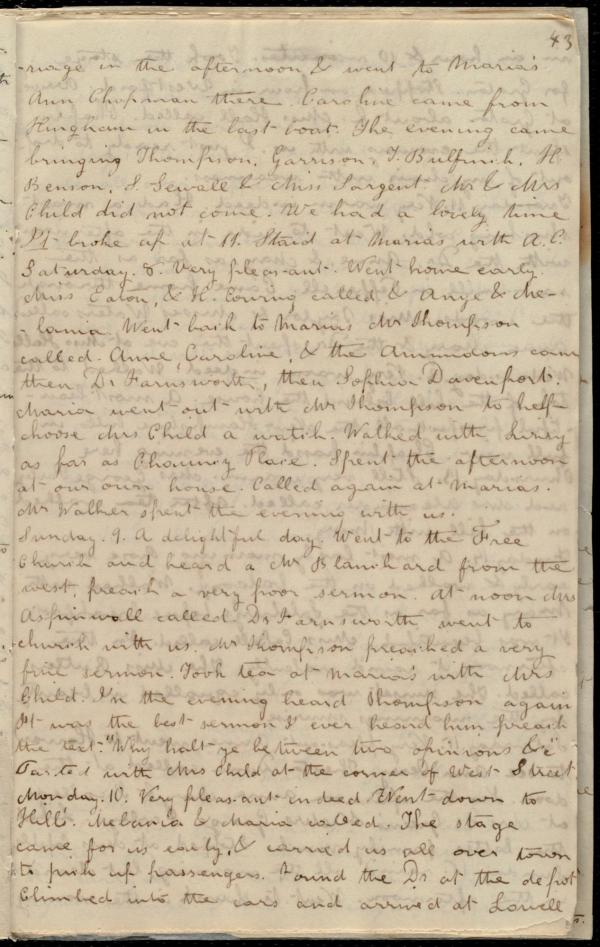 43
-riage in the afternoon & went to Maria's
Ann Chapman there. Caroline came from
Hingham in the last boat. The evening came
bringing Thompson, Garrison, T. Bulfinch, H.
Benson, S. Sewall & Miss Sargent. Mr & Mrs
Child did not come. We had a lovely time
It broke up at 11. Staid at Maria's with A. C.
Saturday. 8. Very pleasant. Went home early.
Miss Eaton, & H. called & Ange & Me-
-lania. Went back to Marias Mr Thompson
called. Anne, Caroline, & the Ammidons cam
then Dr Farnsworth, then Sophia Davenport.
Maria went out with Mr Thompson to help
choose Mrs Child a watch. Walked with Lucy
as far as Chauncy Place. Spent the afternoon
at our own house. Called again at Marias.
Mr Walker spent the evening with us.
Sunday. 9. A delightful day. Went to the Free
Church and heard a Mr Blanchard from the
west, preach a very poor sermon. At noon Mrs
Aspinwall called. Dr Farnsworth went to
church with us. Mr Thompson preached a very
fine sermon. Took tea at Maria's with Mrs
Child. In the evening heard Thompson again
It was the best sermon I ever heard him preach
the text "Why halt ye between two opinions &c"
Parted with Mrs Child at the corner of West Street
Monday. 10. Very pleasant indeed. Went down to
Hill's. Melania & Maria called. The stage
came for us early, & carried us all over town
to pick up passengers. Found the Dr at the depot
Climbed into the cars and arrived at Lowell